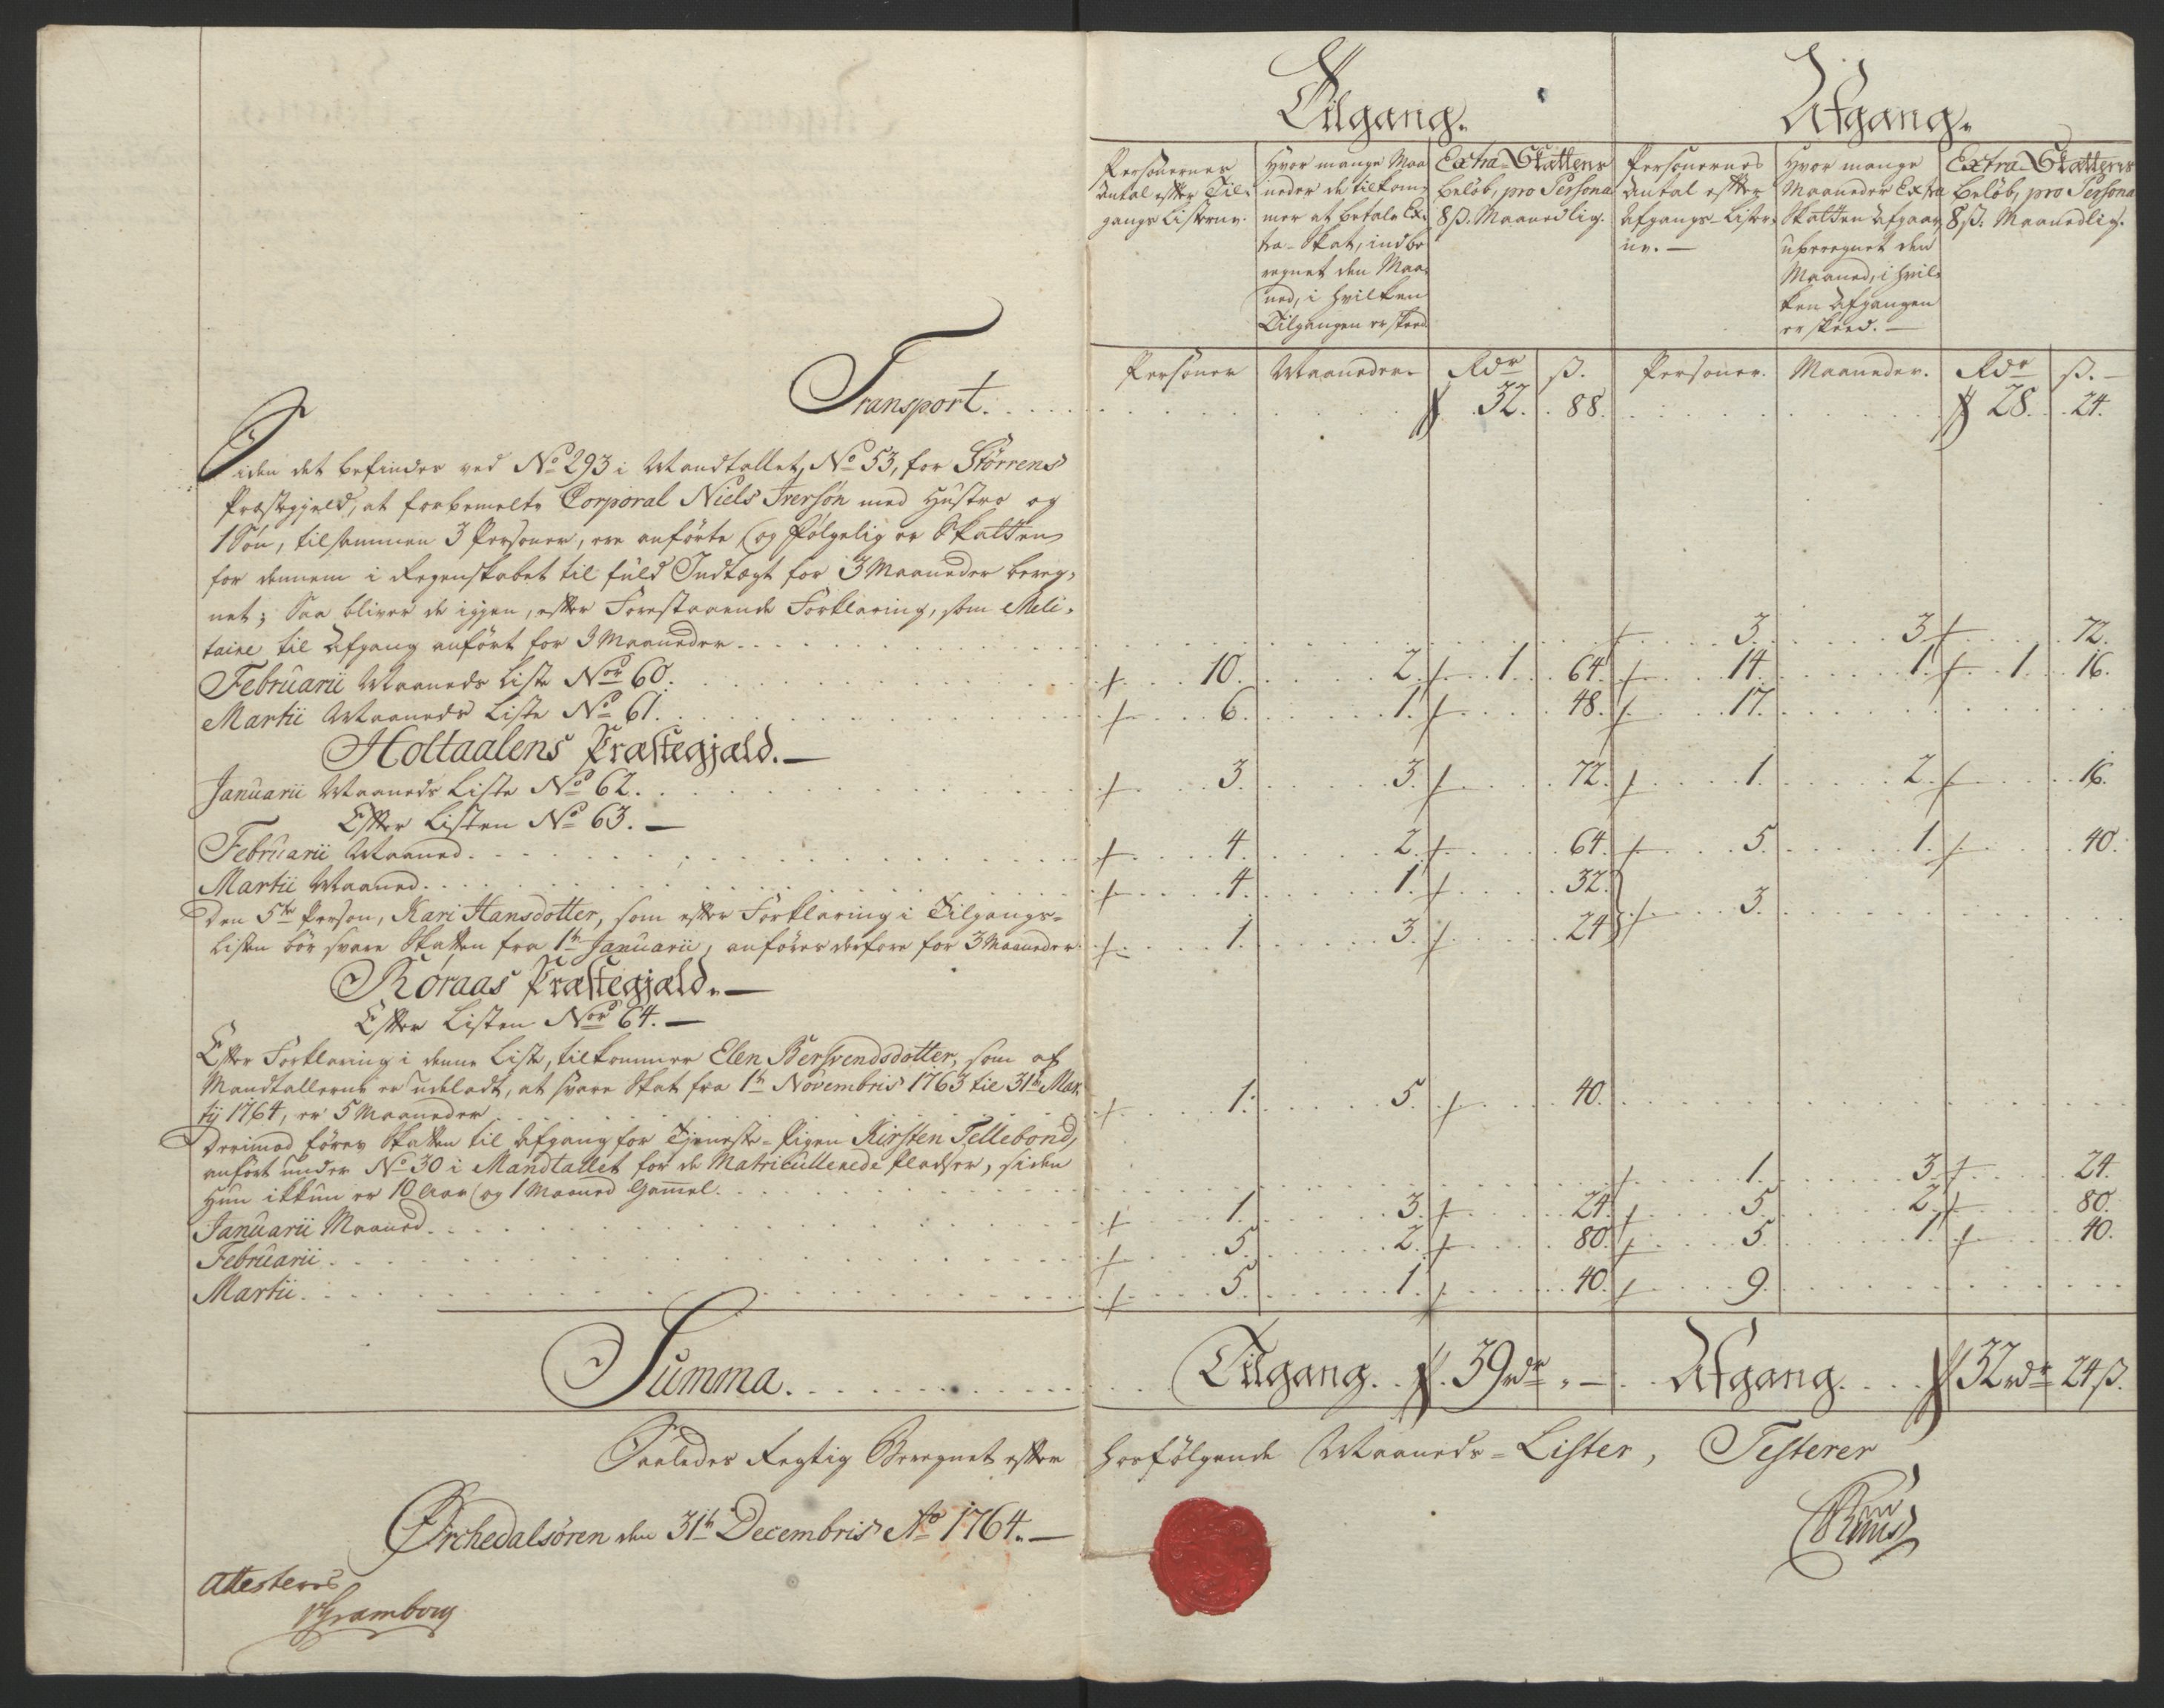 Tilgang. Afgang.
Personernes Antal efter Tilgangs Listerne.
Hvor mange Maaneder de tilkommer at betale Extra-Skat, indberegnet den Maaned, i hvilken Tilgangen er skeed
Extra-Skattens beløb, pro Persona 8 ß. Maanedlig.
Personernes Antal efter Afgangs-Listerne. —
Hvor mange Maaneder Extra Skatten afgaar, uberegnet den Maaned, i hvilken Afgangen er skeed. —
Extra-Skattens beløb, pro Persona 8 ß. Maanedlig.
Personer Maaneder Rdr ß. Personer. Maaneder. Rdr ß. —
Transport. 32. 88. 28. 24.
Siden det befindes ved No 293 i Mandtallet, No 53, for Störrens
Præstegjeld, at forbemelte Corporal Niels Iversøn med Hustro og
1 Søn, tilsammen 3 Personer, ere anförte, og fölgelig er Skatten
for dennem i Regenskabet til fuld Indtægt for 3 Maaneder bereg-
net; Saa bliver de igjen, efter Forestaaende Forklaring, som Meli-
taire til Afgang anfört for 3 Maaneder. 3. 3. 72.
Februarii Maaneds Liste Nor 60. 10. 2. 1. 64. 14. 1. 1. 16.
Martii Maaneds Liste No 61. 6. 1. 48. 17.
Holtaalens Præstegjæld. —
Januarii Maaneds Liste No 62. 3. 3. 72. 1. 2. 16.
Efter Listen No 63. —
Februarii Maaned. 4. 2. 64. 5. 1. 40.
Martii Maaned. 4. 1. 32. 3.
Den 5te Person, Kari Hansdotter, som efter Forklaring i Tilgangs-
Listen bör svare Skatten fra 1te Januarii, anföres derfore for 3 Maaneder. 1. 3. 24
Röraas Præstegjæld. —
Efter Listen Nor 64. —
Efter Forklaring i denne Liste, tilkommer Elen Bersvendsdotter, som af
Mandtallerne er udeladt, at svare Skat fra 1te Novembris 1763 til 31te Mar-
tij 1764, er 5 Maaneder 1. 5. 40.
Derimod föres Skatten til Afgang for Tjeneste-Pigen Kirsten Tellebond,
anfört under No 30 i Mandtallet for de Matricullerede Pladser, siden
Hun ikkun er 10 Aar og 1 Maaned Gammel. 1. 3. 24.
Januarii Maaned. 1. 3. 24. 5. 2. 80.
Februarii. 5. 2. 80. 5. 1. 40.
Martii. 5. 1. 40. 9.
Summa. Tilgang. 39 rdr „ — Afgang. 32 rdr 24 ß.
Saaledes Rigtig Beregnet efter Hosfölgende Maaneds-Lister, Testerer
Örchedalsören den 31te Decembris Ao 1764. —
Attesteres
Gramborg